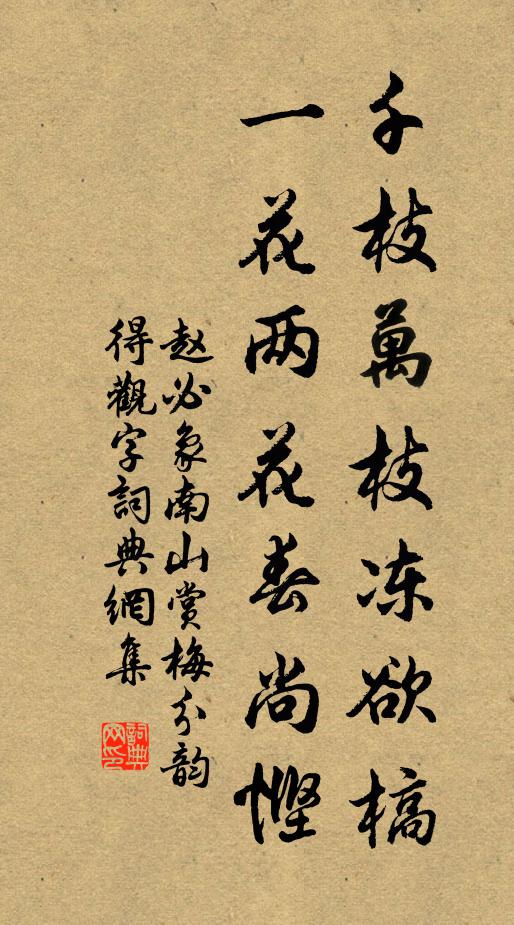 千枝萬枝冻欲槁
一花两花春尚慳
赵必象南山赏梅分韵
得觀字詞典網集
詞典网印